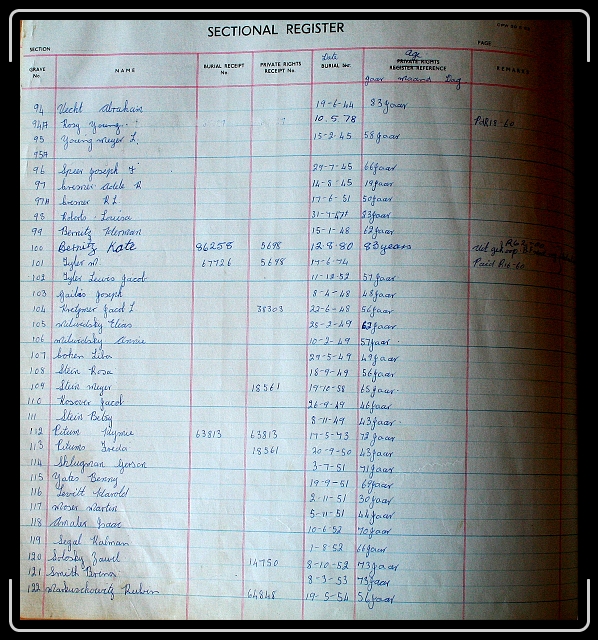 SECTIONAL REGISTER
SECTION PAGE
GRAVE No. NAME BURIAL RECEIPT No. PRIVATE RIGHTS RECEIPT No. Date BURIAL Age PRIVATE RIGHTS REGISTER REFERENCE REMARKS
Jaar Maand Dag
94 Vecht Abraham 19-6-44 83 Jaar
94A Rosy Young 10.5.78
95 Young Meyer L. 15-2-45 58 Jaar
95A
96 Speer Joseph 29-7-45 66 Jaar
97 Bresner Adele R 14-8-45 19 Jaar
97A Bresner R L 17-6-51 50 Jaar
98 Roberts Louisa 83 Jaar
99 Bernitz Herman 15-1-48 62 Jaar
100 Bernitz Kate 86258 5698 12.8.80 83 years
101 Tyler M. 67726 5698 17-6-74 Paid R10-60
102 Tyler Lewis Jacob 11-12-52 57 Jaar
103 Joseph 8-4-48 48 Jaar
104 Kretzmer Jacob L 38303 22-6-48 56 Jaar
105 Milwidsky Elias 28-2-49 62 Jaar
106 Milwidsky Annie 10-2-49 57 Jaar
107 Cohen Liba 29-5-49 49 Jaar
108 Stein Rosa 18-9-49 56 Jaar
109 Stein Meyer 18561 19-10-58 65 Jaar
110 Kosover Jacob 26-9-49 46 Jaar
111 Stein Betsy 8-11-49 43 Jaar
112 Pitum Hymie 63813 63813 17-5-73 72 Jaar
113 Pitums Freda 18361 20-9-50 43 Jaar
114 Shlugman Gerson 3-7-51 71 Jaar
115 Yates Benny 19-9-51 69 Jaar
116 Levitt Harold 2-11-51 30 Jaar
117 Moser Marten 5-11-51 44 Jaar
118 Amaler Isaac 10-6-52 70 Jaar
119 Segal Kalman 1-8-52 66 Jaar
120 Solosky 14750 8-10-52 73 Jaar
121 Smith 8-3-53 73 Jaar
122 Markuschowitz Rubin 64848 19-5-54 56 Jaar